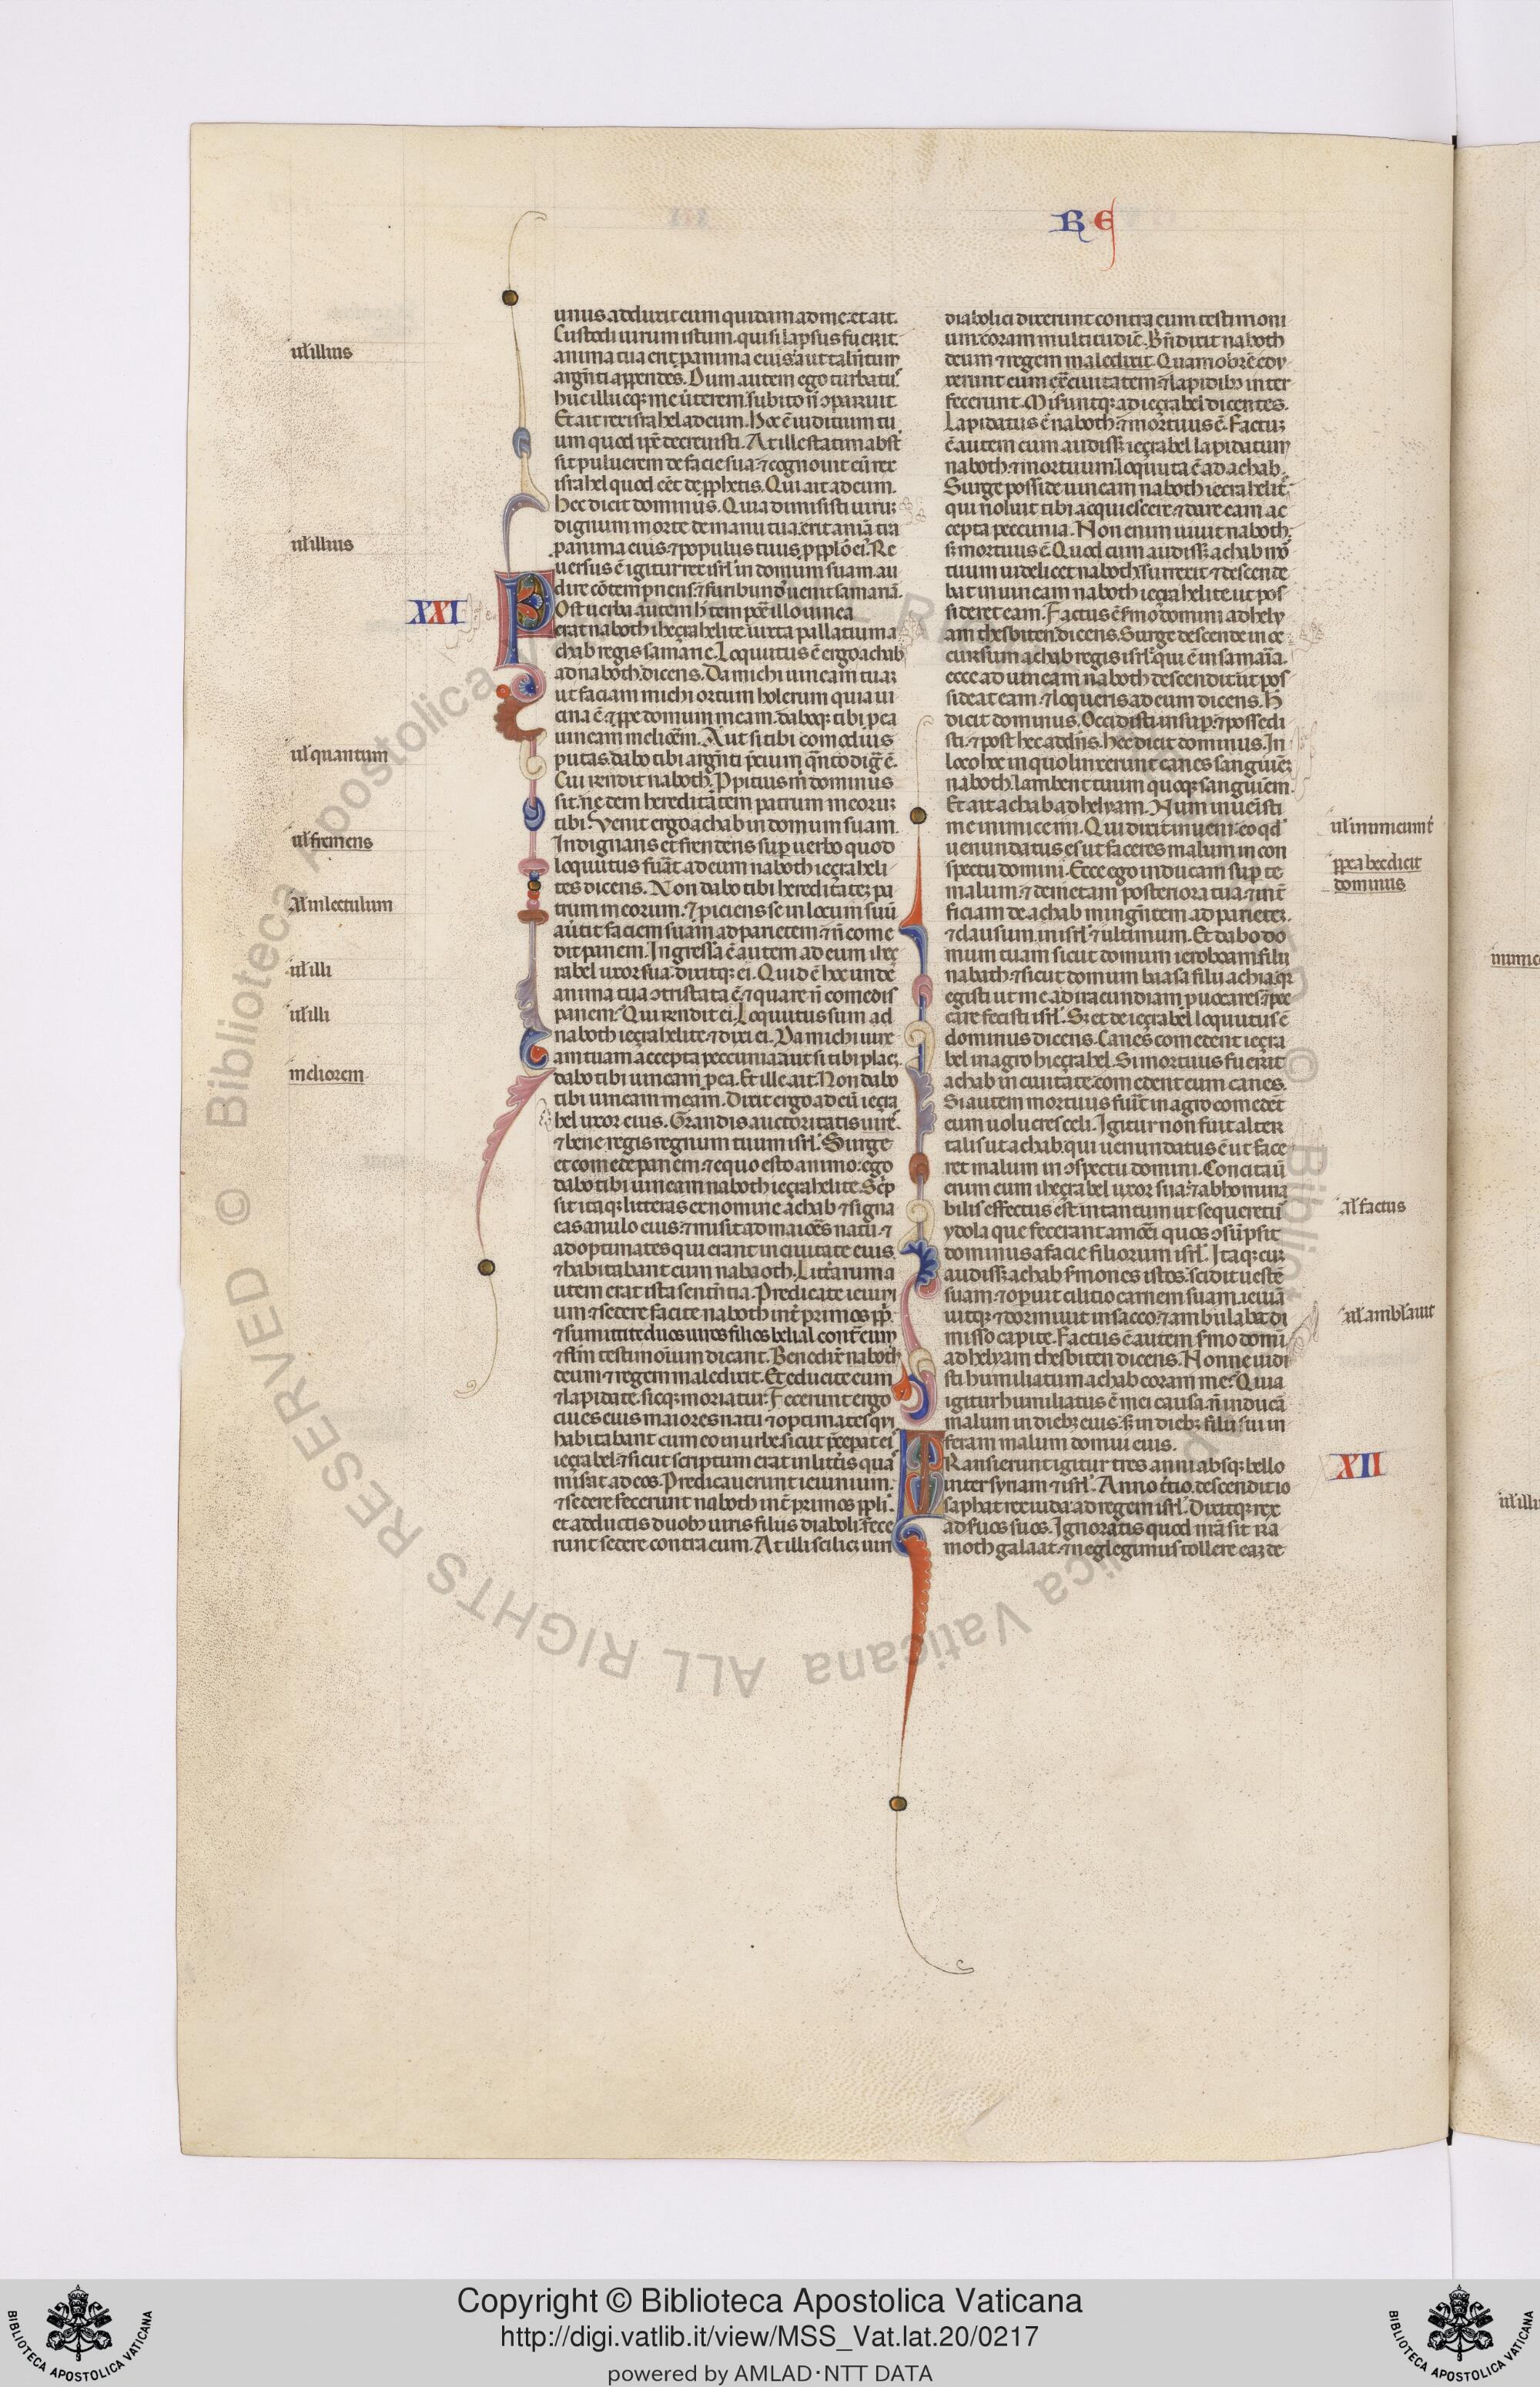 RE
unus adduxit eum quidam ad me. et ait.
Custodi uirum istum. qui si lapsus fuerit
ul' illius
anima tua erit p anima eius aut talntum
argnti appendes. Dum autem ego turbatus
huc illucqȝ me uterem. subito n ɔparuit
Et ait rex israhel ad eum. Hoc ē iuditium tu
um quod ipe decreuisti. At ille statim abst
sit puluerem de facie sua. ⁊ cognouit eu rex
israhel quod eet de pphetis. Qui ait ad eum.
Hec dicit dominus. Quia dimisisti uiruȝ
dignum morte de manu tua. erit ania tua
ul' illius
p anima eius. ⁊ populus tuus p pplo ei. Re
uersus ē igitur rex isrl' in domum suam au
dire cotempnens. ⁊ furibund uenit samaria.
XXI
Post uerba autem h tempore illo uinea
erat naboth ihezrahelite iuxta pallatium a
chab regis samarie. Loquutus ē ergo achab
ad naboth. dicens. Da michi uineam tuaȝ
ut faciam michi ortum holerum quia ui
cina ē ⁊ ppe domum meam. daboqȝ tibi p ea
uineam meliorem. Aut si tibi comodius
ul' quantum
putas. dabo tibi argnti pcium qnto dig ē.
Cui rndit naboth. Ppitius m dominus
sit. ne dem hereditatem patrum meoruȝ
tibi. Venit ergo achab in domum suam.
ul' fremens
Indignans et frendens sup uerbo quod
loquutus fuat ad eum naboth iezraheli
tes dicens. Non dabo tibi hereditateȝ pa
al' in lectulum
trum meorum. ⁊ piciens se in locum suu
auertit faciem suam ad parietem ⁊ n come
dit panem. Ingressa ē autem ad eum ihez
ul' illi
rabel uxor sua. dixitqȝ ei. Quid ē hoc unde
anima tua ɔtristata ē. ⁊ quare n comedis
ul' illi
panem. Qui rendit ei. Loquutus sum ad
naboth iezrahelite ⁊ dixi ei. Da michi uine
am tuam accepta peccunia aut si tibi placȝ
meliorem
dabo tibi uineam p ea. Et ille ait. Non dabo
tibi uineam meam. Dixit ergo ad eu iezra
bel uxor eius. Grandis auctoritatis uire.
⁊ bene regis regnum tuum isrl'. Surge
et comede panem. ⁊ equo esto animo. ego
dabo tibi uineam naboth iezrahelite. Scrip
sit itaqȝ litteras ex nomine achab ⁊ signa
eas anulo eius. ⁊ misit ad maiores natu. ⁊
ad optimates qui erant in ciuitate eius.
⁊ habitabant cum nabaoth. Litterarum a
utem erat ista sententia. Predicate ieiuni
um ⁊ sedere facite naboth int primos ppli.
⁊ sumittite duos uiros filios belial cont eum
⁊ flm testimonium dicant. Benedixit naboth
deum ⁊ regem maledixit. Et educite eum
⁊ lapidate. sicqȝ moriatur. Fecerunt ergo
ciues eius maiores natu ⁊ optimates qui
habitabant cum eo in urbe. sicut pcepat eis
iezrabel. ⁊ sicut scriptum erat in litteris quas
misat ad eos. Predicauerunt ieiunium.
⁊ sedere fecerunt naboth int primos ppli.
et adductis duobȝ uiris filiis diaboli. fece
runt sedere contra eum. At illi scilicȝ uiri
diabolici dixerunt contra eum testimoni
um. coram multitudie. Bndixit naboth
deum ⁊ regem maledixit. Quam obre edu
xerunt eum ex ciuitatem. ⁊ lapidibȝ inter
fecerunt. Miseruntqȝ ad iezrabel dicentes.
Lapidatus ē naboth. ⁊ mortuus ē. Factuȝ
ē autem cum audissȝ iezrabel lapidatum
naboth. ⁊ mortuum. loquuta ē ad achab.
Surge posside uineam naboth iezrahelite
qui noluit tibi acquiescere. ⁊ dare eam ac
cepta peccunia. Non enim uiuit naboth.
sȝ mortuus ē. Quod cum audissȝ achab mor
tuum uidelicet naboth. surrexit ⁊ descende
bat in uineam naboth iezrahelite ut pos
sideret eam. Factus ē smo domini ad hely
am thesbiten. dicens. Surge descende in oc
cursum achab regis isrl'. qui ē in samaria.
ecce ad uineam naboth descendit ut pos
sideat eam. ⁊ loqueris ad eum dicens. H
dicit dominus. Occidisti insup. ⁊ possedi
sti. ⁊ post hec addns. Hec dicit dominus. In
loco hoc in quo linxerunt canes sanguineȝ
naboth. lambent tuum quoqȝ sanguinem.
Et ait achab ad helyam. Num inuenisti
ul' inimicum t
me inimice mi. Qui dixit inueni. eo qd
uenundatus es ut faceres malum in con
pptea hec dicit
dominus
spectu domini. Ecce ego inducam sup te
malum. ⁊ demetam posteriora tua. ⁊ int
ficiam de achab mingntem ad parieteȝ.
⁊ clausum in isrl' ⁊ ultimum. Et dabo do
mum tuam sicut domum ieroboam filii
nabath. ⁊ sicut domum baasa filii achia. qr
egisti ut me ad iracundiam puocares. ⁊ pec
care fecisti isrl'. Sȝ et de iezrabel loquutus ē
dominus dicens. Canes comedent iezra
bel in agro hiezrabel. Si mortuus fuerit
achab in ciuitate. comedent eum canes.
Si autem mortuus fuit in agro comedet
eum uolucres celi. Igitur non fuit alter
talis ut achab. qui uenundatus ē ut face
ret malum in ɔspectu domini. Concitauit
enim eum ihezrabel uxor sua. ⁊ abhomina
al' factus
bilis effectus est in tantum ut sequeretur
ydola que fecerant amorrei quos ɔsupsit
dominus a facie filiorum isrl'. Itaqȝ cum
audissȝ achab smones istos. scidit ueste
suam. ⁊ opuit cilitio carnem suam. ieiuna
ul' amblauit
uitqȝ ⁊ dormiuit in sacco. ⁊ ambulabat di
misso capite. Factus ē autem smo domini
ad helyam thesbiten dicens. Nonne uidi
sti humiliatum achab coram me. Quia
igitur humiliatus ē mei causa. n inducam
malum in diebȝ eius. sȝ in diebȝ filii sui in
feram malum domui eius.
XII
Transierunt igitur tres anni absqȝ bello
inter syriam ⁊ isrl'. Anno tertio. descendit io
saphat rex iuda. ad regem isrl'. Dixitqȝ rex
ad suos suos. Ignoratis quod nra sit ra
moth galaat. ⁊ neglegimus tollere eaȝ de
Copyright © Biblioteca Apostolica Vaticana
http://digi.vatlib.it/view/MSS_Vat.lat.20/0217
powered by AMLAD·NTT DATA